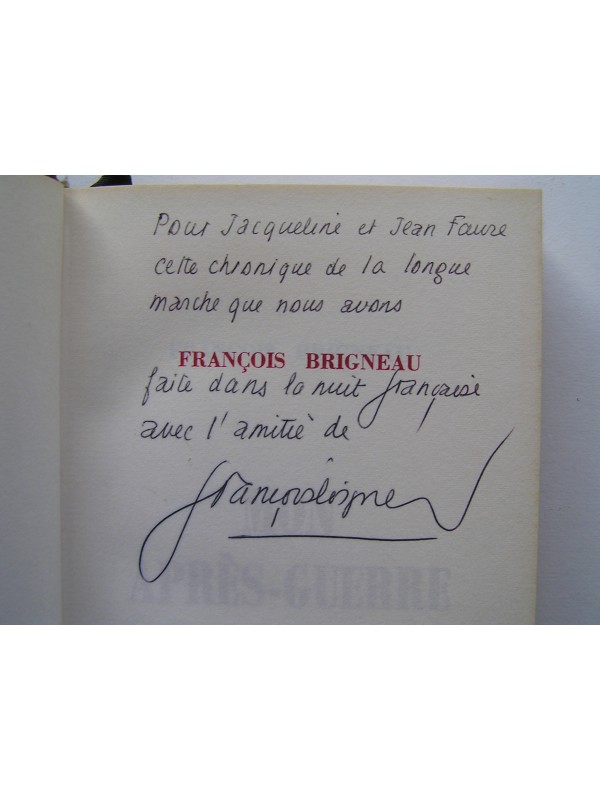 Pour Jacqueline et Jean Faure
cette chronique de la longue
marche que nous avons
FRANÇOIS BRIGNEAU
faite dans la nuit française
avec l'amitié de
François Brigneau
MON
APRÈS-GUERRE